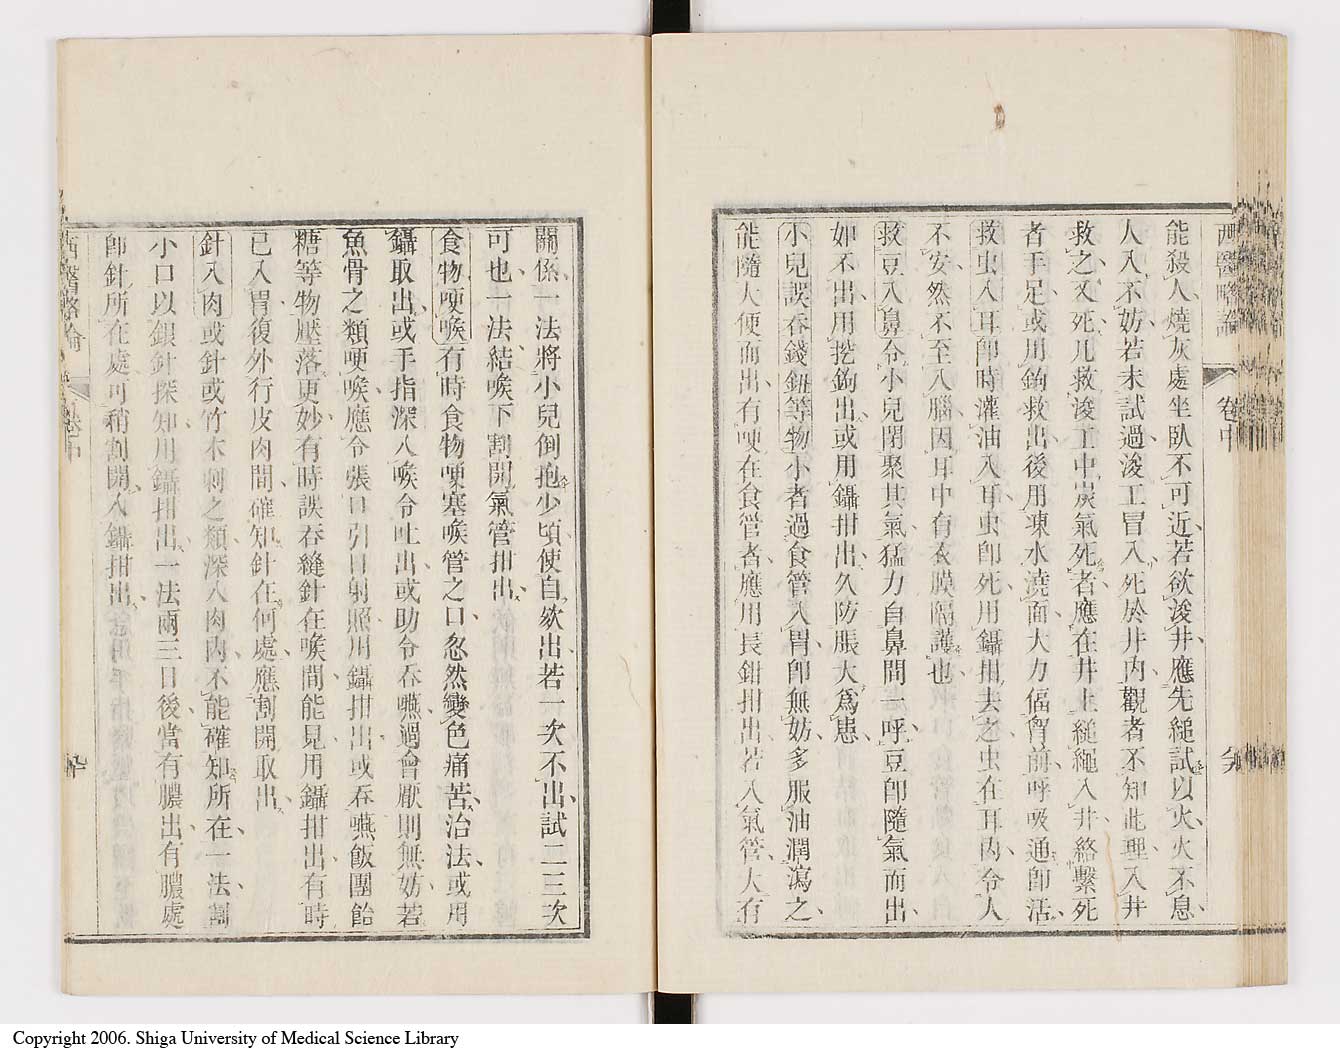 西醫略論 卷中
能殺人、燒灰處坐臥不可近、若欲浚井、應先縋試以火、火不息、
人入不妨、若未試過、浚工冒入、死於井內、觀者不知此理、入井
救之又死、凡救浚工中炭氣死者、應在井上縋繩入井絡繫死
者手足、或用鉤救出、後用凍水澆面、大力偪胷前、呼吸通卽活、
救虫入耳卽時灌油入耳、虫卽死、用鑷拑去之、虫在耳內、令人
不安、然不至入腦、因耳中有衣膜隔護也、
救豆入鼻令小兒閉聚其氣、猛力自鼻間一呼、豆卽隨氣而出、
如不出、用挖鉤出、或用鑷拑出、久防脹大爲患、
小兒誤吞錢鈕等物小者過食管、入胃卽無妨、多服油潤瀉之、
能隨大便而出、有哽在食管者、應用長鉗拑出、若入氣管、大有
關係、一法將小兒倒抱少頃、使自欬出、若一次不出、試二三次
可也、一法結喉下割開氣管拑出、
食物哽喉有時食物哽塞喉管之口、忽然變色痛苦、治法、或用
鑷取出、或手指深入喉令吐出、或助令吞嚥過會厭則無妨、若
魚骨之類哽喉、應令張口引日射照、用鑷拑出、或吞嚥飯團飴
糖等物壓落、更妙、有時誤吞縫針在喉間能見、用鑷拑出、有時
已入胃復外行皮肉間、確知針在何處、應割開取出、
針入肉或針或竹木刺之類、深入肉內、不能確知所在、一法、割
小口以銀針探知、用鑷拑出、一法兩三日後、當有膿出、有膿處
卽針所在處、可稍割開、入鑷拑出、
西醫略論 卷中
Copyright 2006. Shiga University of Medical Science Library